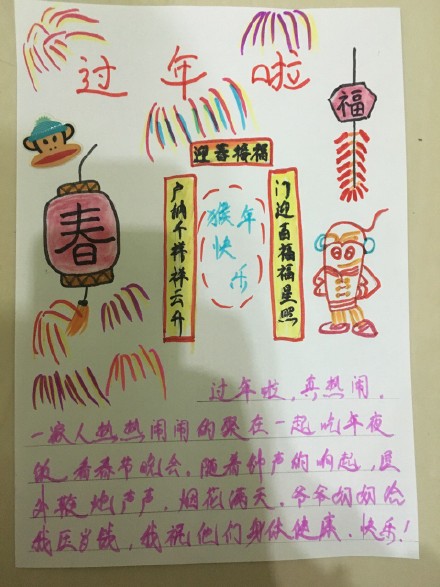 过年啦
福
迎喜接福
春
门迎百福福星照
户纳千祥祥云升
猴年
快乐
过年啦,真热闹。
一家人热热闹闹的聚在一起吃年夜
饭,看春节晚会。随着钟声的响起,
外鞭炮声声,烟花满天。爷爷奶奶给
我压岁钱,我祝他们身体健康、快乐!